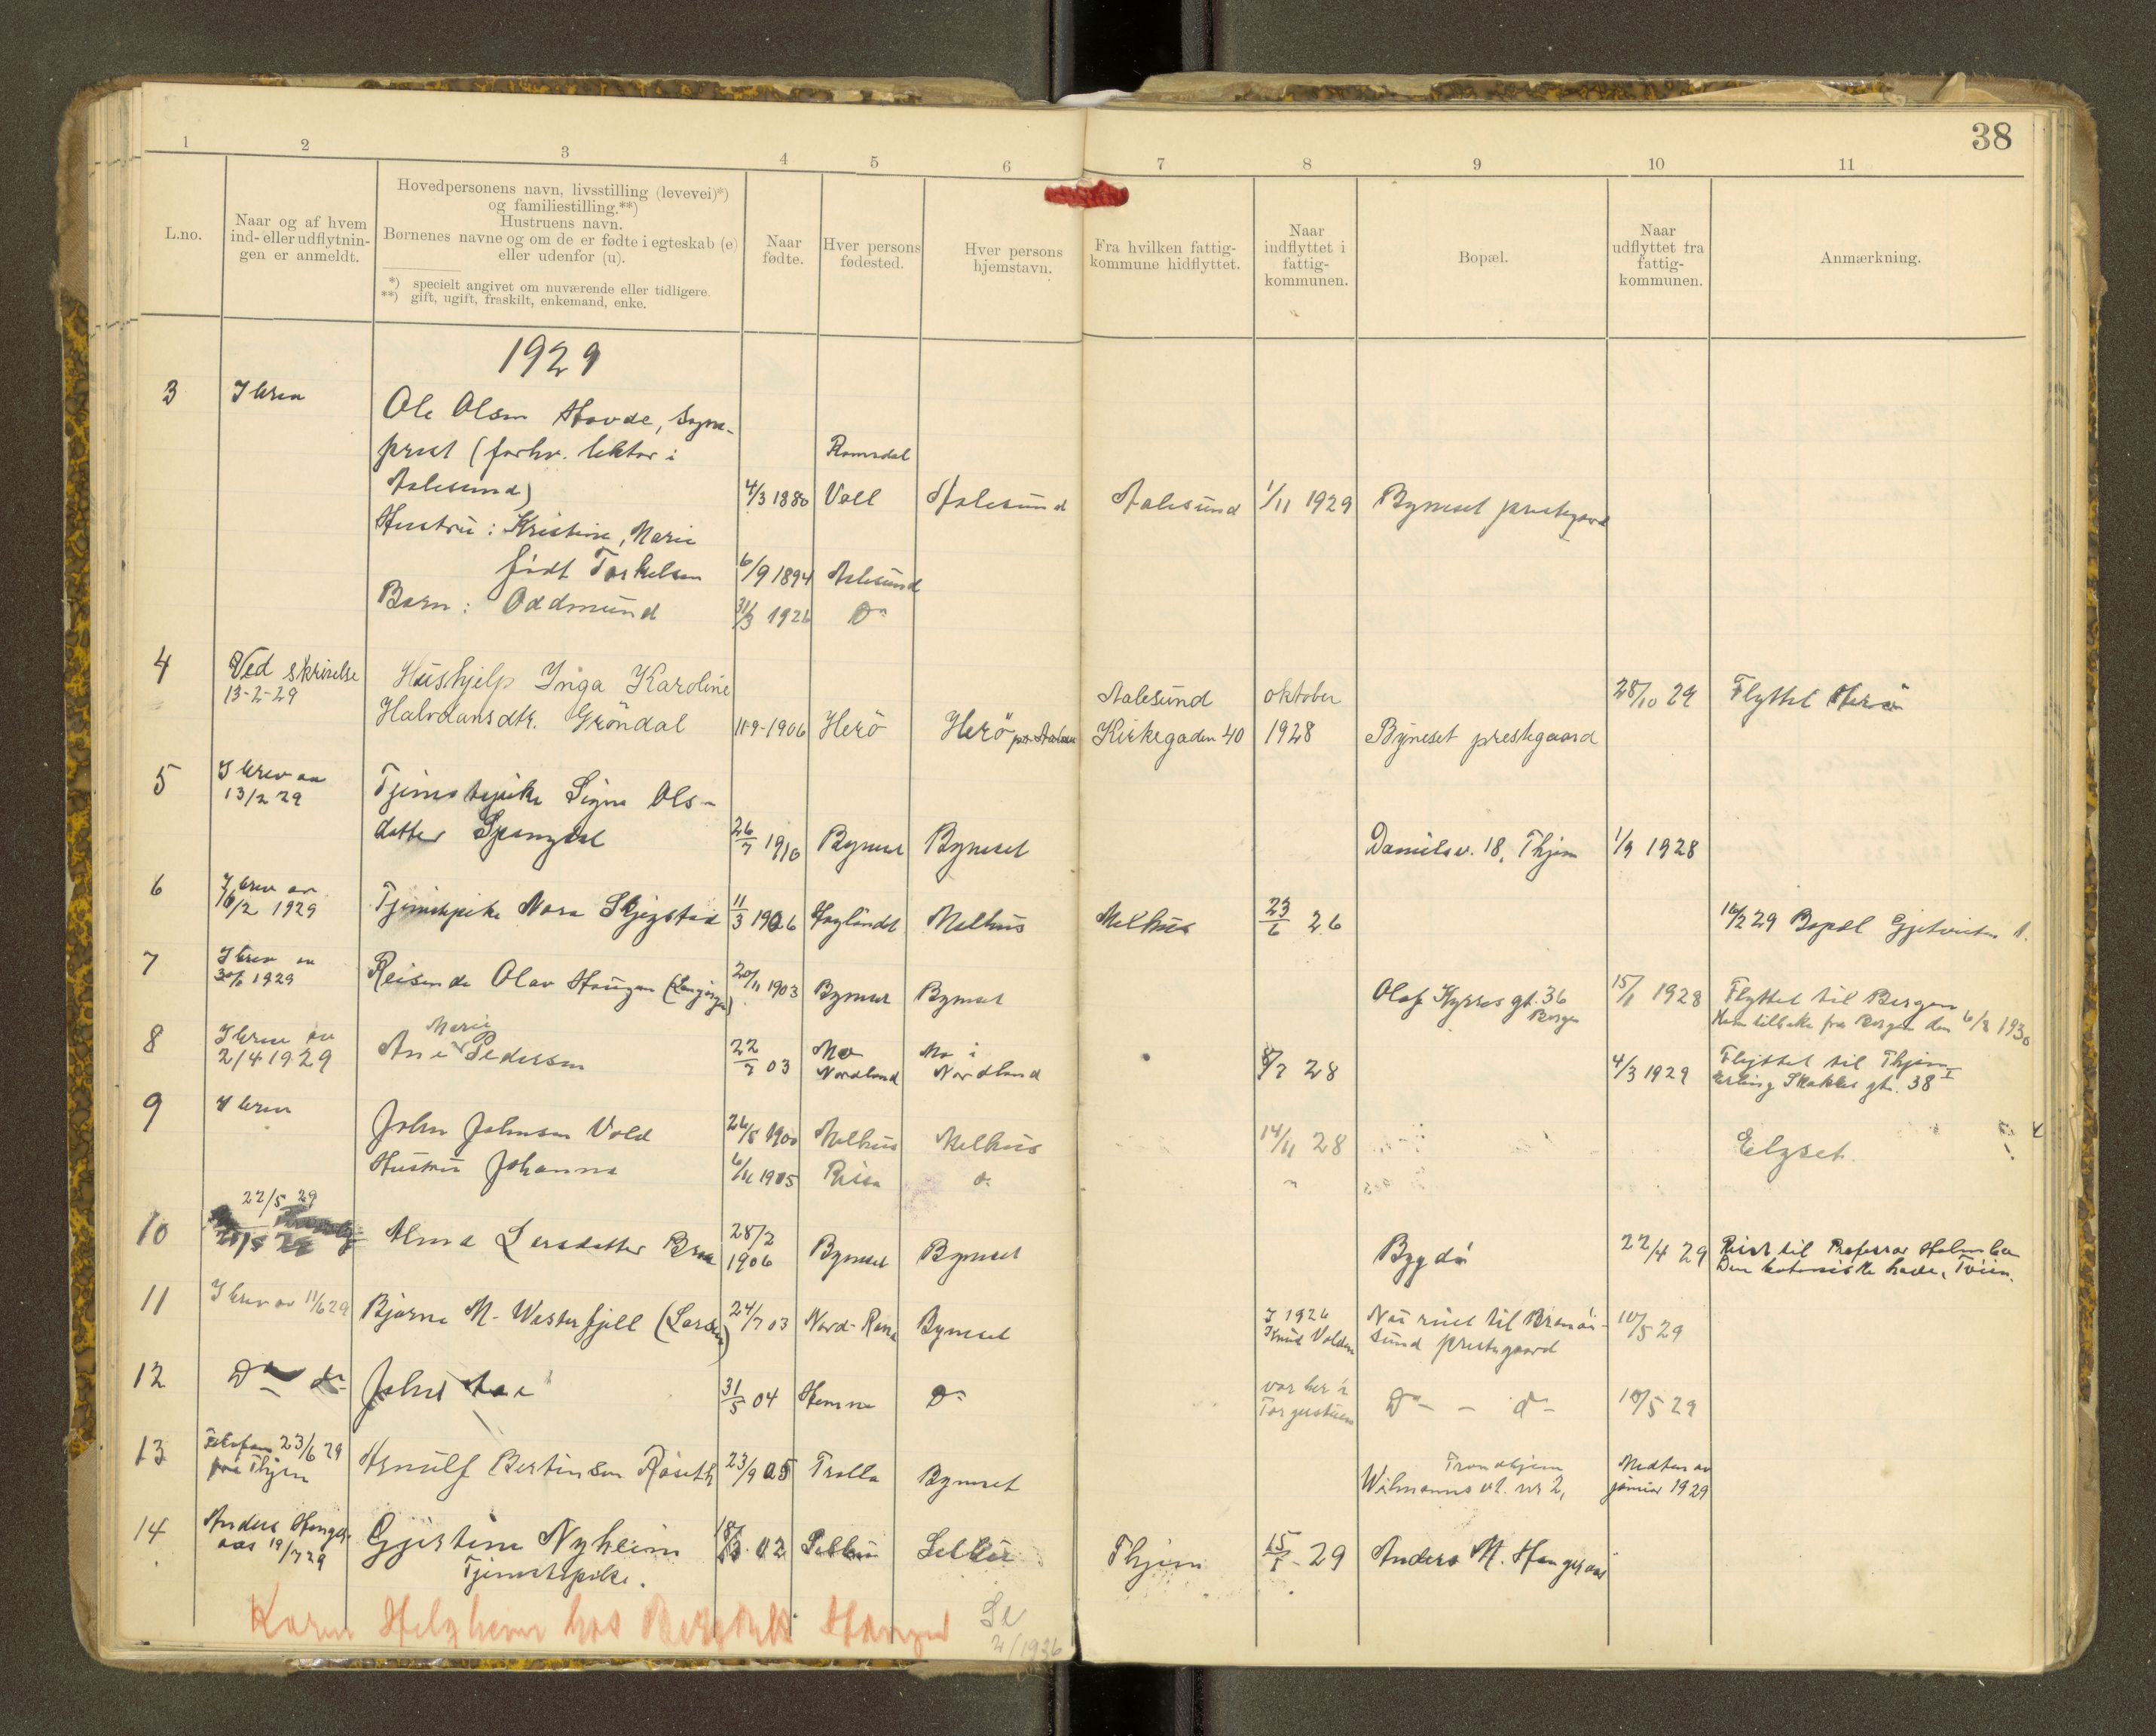 38
1 2 3 4 5 6 7 8 9 10 11
L.no.
Naar og af hvem
ind- eller udflytnin-
gen er anmeldt.
Hovedpersonens navn, livsstilling (levevei)*)
og familiestilling.**)
Hustruens navn.
Børnenes navne og om de er fødte i egteskab (e)
eller udenfor (u).
*) specielt angivet om nuværende eller tidligere.
**) gift, ugift, fraskilt, enkemand, enke.
Naar
fødte.
Hver persons
fødested.
Hver persons
hjemstavn.
Fra hvilken fattig-
kommune hidflyttet.
Naar
indflyttet i
fattig-
kommunen.
Bopæl.
Naar
udflyttet fra
fattig-
kommunen.
Anmærkning.
1929
3 I brev Ole Olsen Hovde, sogne-
prest (forhv. lektor i Romsdal
Aalesund) 4/3 1880 Voll Aalesund Aalesund 1/11 1929 Byneset prestegaard
Hustru: Kristine, Marie
født Torkelsen 6/9 1894 Aalesund
Barn: Oddmund 31/3 1926 Do
4 Ved skrivelse Hushjelp Inga Karoline Aalesund oktober 28/10 29 Flyttet Herö
13-2-29 Halvdansdtr. Gröndal 11-9-1906 Herö Herö Kirkegaden 40 1928 Byneset prestegaard
5 I brev av Tjenestepike Signe Ols-
13/2 29 datter Spongdal 26/7 1910 Byneset Byneset Danielsv. 18, Thjem 1/9 1928
6 I brev av
16/2 1929 Tjenestepike Nora Skjegstad 11/3 1906 Høylandet Melhus Melhus 23/6 26 16/2 29 Bopæl Gjetvieten
7 I brev av
1929 Reisende Olav Haugen 20/11 1903 Byneset Byneset Olaf Kyrres gt. 36 15/1 1928 Flyttet til Bergen
Bergen Kom tilbake fra Bergen den 6/2 1930
8 I brev av Marie
2/4 1929 Ane Pedersen 22/7 03 Mo Mo i 8/7 28 4/3 1929 Flyttet til Thjem
Nordland Nordland Erling Skakkes gt. 38 I
9 I brev John Johnsen Vold 26/5 1900 Melhus Melhus 14/11 28 Elgset
Hustru Johanna 6/11 1905 Rissa do
22/5 29
10 Alma Larsdatter Braa 28/2
1906 Byneset Byneset Bygdö 22/4 29 Reist til Professor Holmboe
Den botaniske have, Töien.
11 I brev av 11/6 29 Bjarne M. Westerfjell (Larsen) 24/7 03 Nord-Rana Byneset I 1926 Nå reist til Brönöi- 10/5 29
Knut Volden sund prestegaard
12 Do do John 31/5 04 Hemne Do var her i Do - do 10/5 29
Torgerstuen
13 Telefon 23/6 29
fra Thjem Arnulf Bertinsen Röseth 23/9 05 Trolla Byneset Trondhjem Midten av
Wilmanns vt. nr 2, januar 1929
14 Anders Hanger-
aas 19/7 29 Gjertine Nyheim 02 Selbu Selbu Thjem 29 Anders M. Hangeraas
Tjenestepike.
Karen Helghem hos